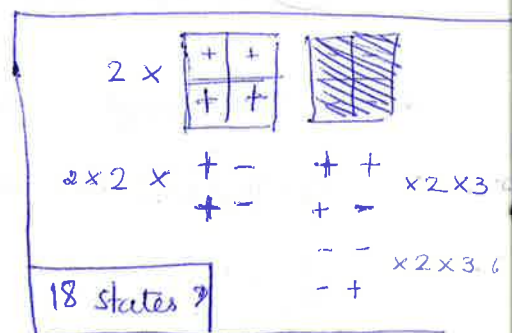 2 ×
+ +
+ +
2×2 × + - + + ×2×3
+ - + -
- - ×2×3
- +
18 states ?